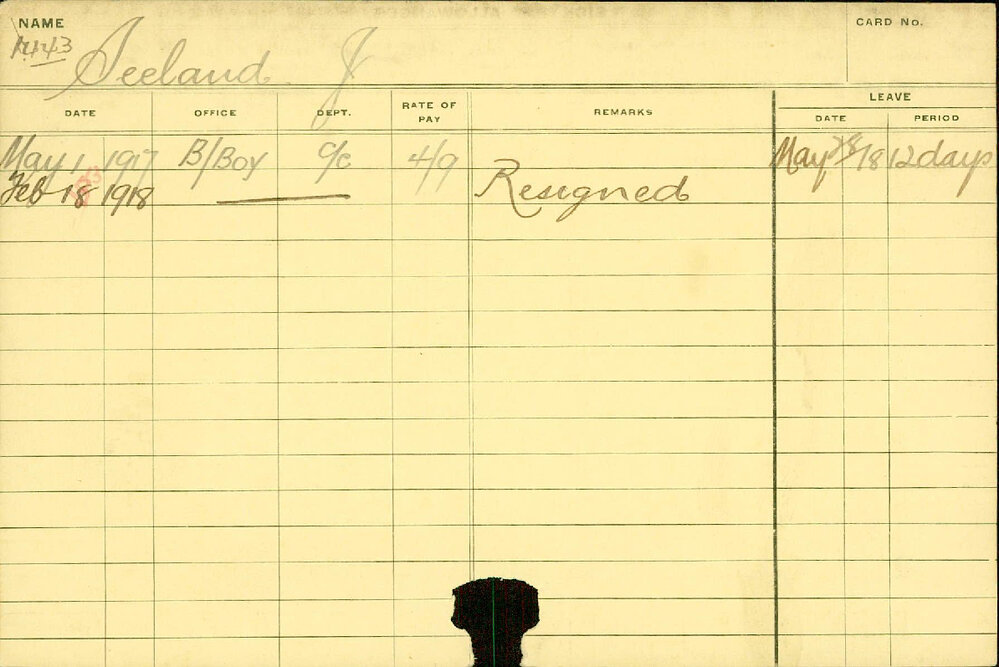 NAME
CARD No.
1443
Seeland J
DATE OFFICE DEPT. RATE OF PAY REMARKS LEAVE
DATE PERIOD
May 1 1917 B/Boy C/c 4/9 May 28 18 12 days
Feb 18 1918 Resigned